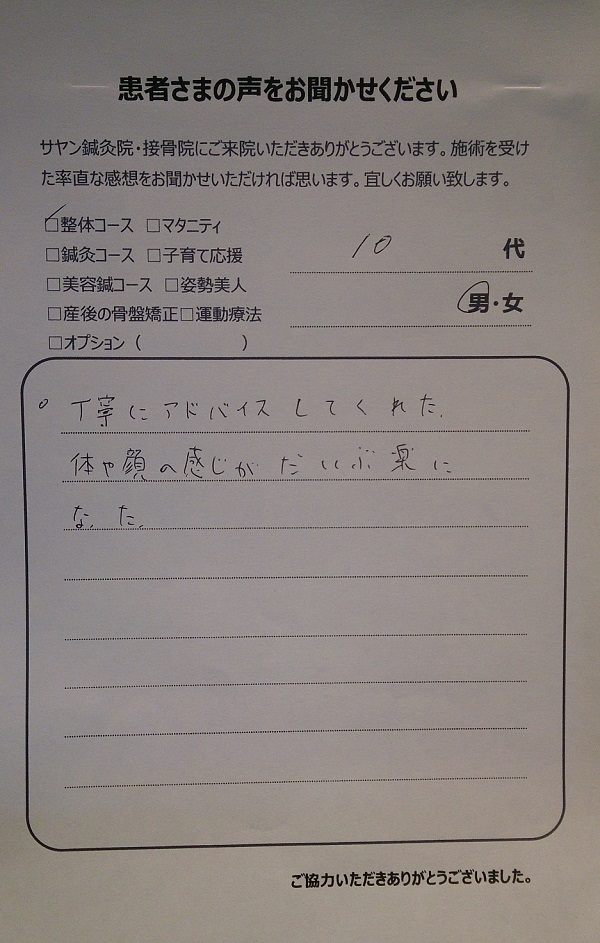 患者さまの声をお聞かせください
サヤン鍼灸院・接骨院にご来院いただきありがとうございます。施術を受け
た率直な感想をお聞かせいただければ思います。宜しくお願い致します。
□整体コース □マタニティ
□鍼灸コース □子育て応援
10 代
□美容鍼コース □姿勢美人
男・女
□産後の骨盤矯正□運動療法
□オプション( )
○丁寧にアドバイスしてくれた.
体や顔の感じがだいぶ楽に
なった.
ご協力いただきありがとうございました。